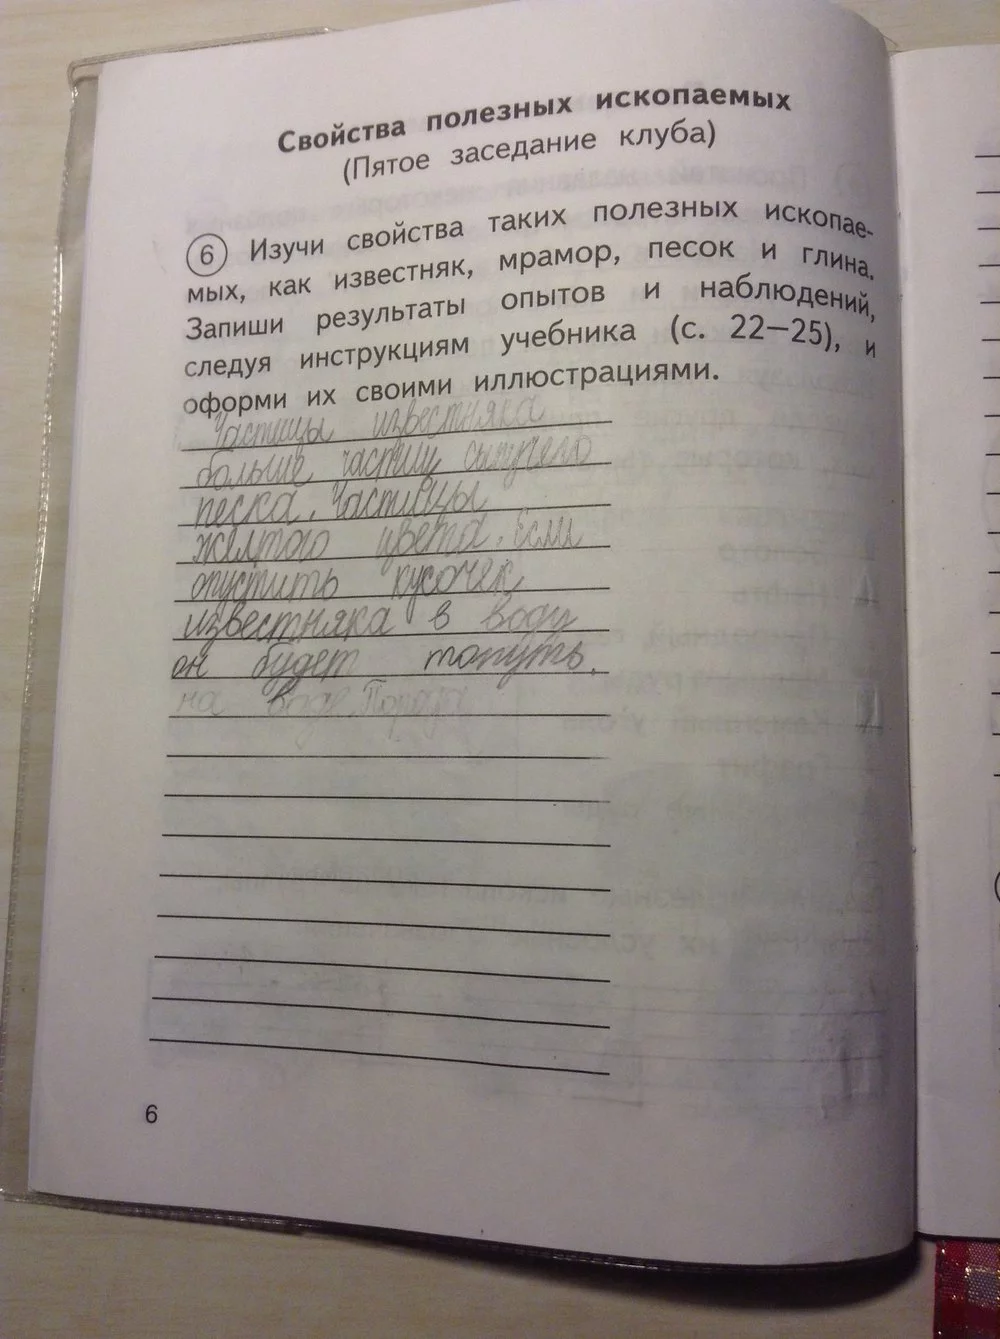 Свойства полезных ископаемых
(Пятое заседание клуба)
6 Изучи свойства таких полезных ископае-
мых, как известняк, мрамор, песок и глина.
Запиши результаты опытов и наблюдений,
следуя инструкциям учебника (с. 22—25), и
оформи их своими иллюстрациями.
Частицы известняка
больше частиц сыпучего
песка. Частицы
желтого цвета. Если
опустить кусочек
известняка в воду
он будет тонуть.
на воде
6